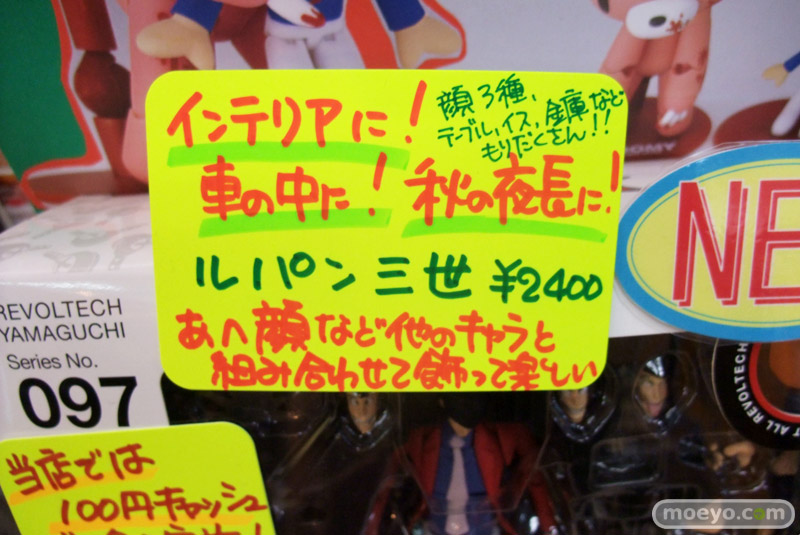 インテリアに!
顔3種、
テーブル、イス、金庫など
もりだくさん!!
車の中に! 秋の夜長に!
ルパン三世 ¥2400
あへ顔など他のキャラと
組み合わせて飾って楽しい
NE
REVOLTECH
YAMAGUCHI
Series No.
097
当店では
100円キャッシュ
ALL REVOLTECH
moeyo.com